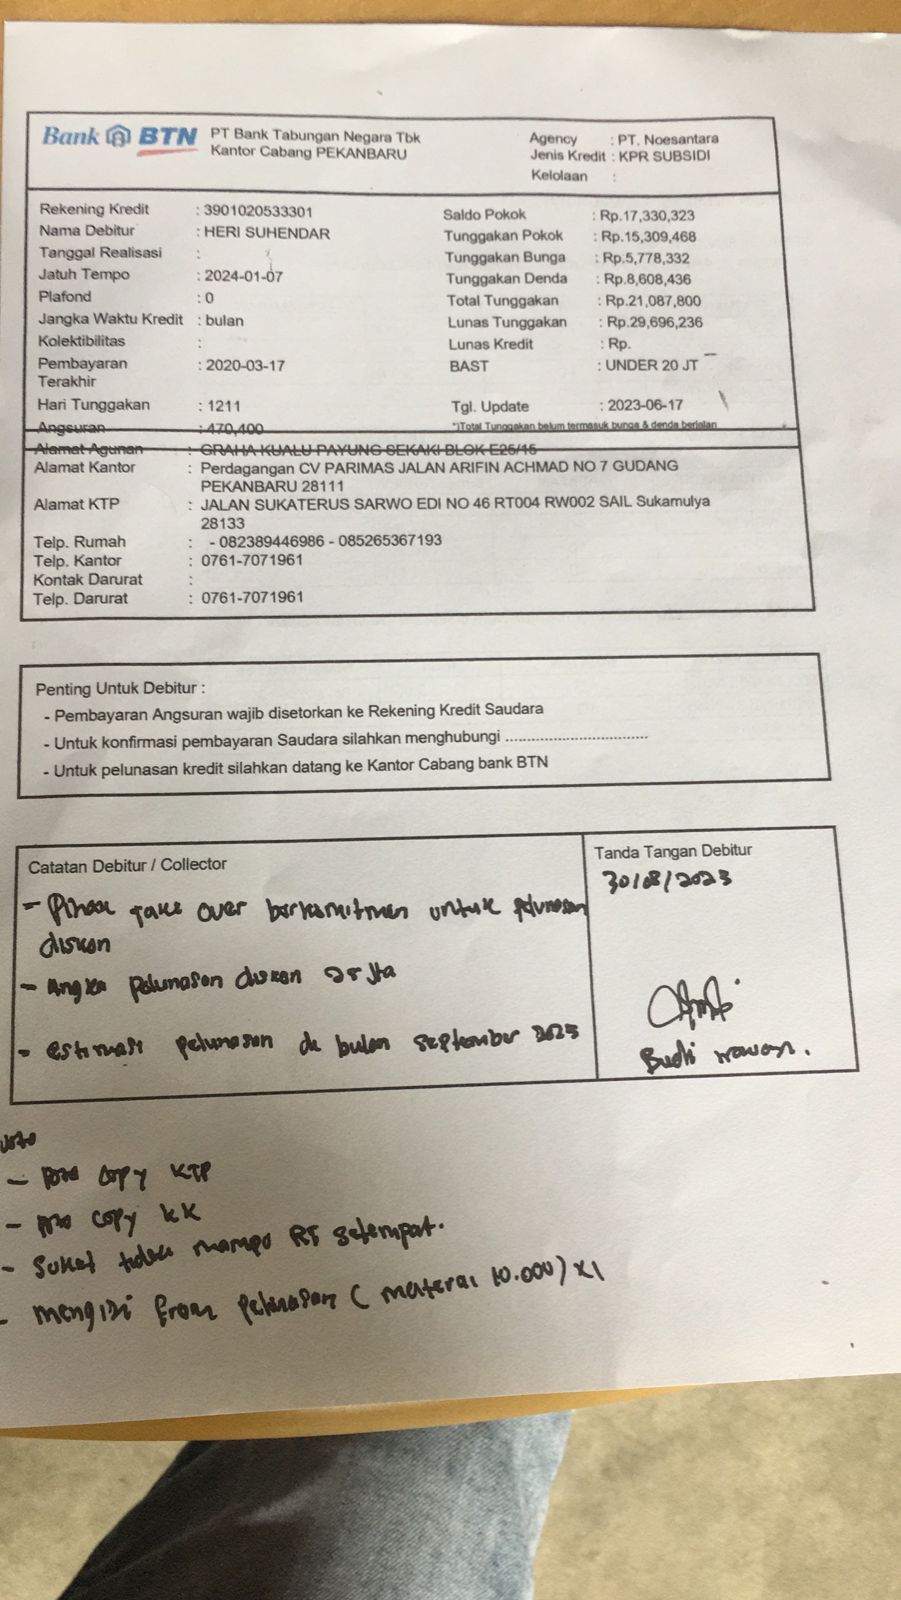 Bank BTN PT Bank Tabungan Negara Tbk
Kantor Cabang PEKANBARU
Agency : PT. Noesantara
Jenis Kredit : KPR SUBSIDI
Kelolaan :
Rekening Kredit : 3901020533301
Nama Debitur : HERI SUHENDAR
Tanggal Realisasi :
Jatuh Tempo : 2024-01-07
Plafond : 0
Jangka Waktu Kredit : bulan
Kolektibilitas :
Pembayaran Terakhir : 2020-03-17
Hari Tunggakan : 1211
Angsuran : 470,400
Saldo Pokok : Rp.17,330,323
Tunggakan Pokok : Rp.15,309,468
Tunggakan Bunga : Rp.5,778,332
Tunggakan Denda : Rp.8,608,436
Total Tunggakan : Rp.21,087,800
Lunas Tunggakan : Rp.29,696,236
Lunas Kredit : Rp.
BAST : UNDER 20 JT
Tgl. Update : 2023-06-17
*)Total Tunggakan belum termasuk bunga & denda berjalan
Alamat Agunan : GRAHA KUALU PAYUNG SEKAKI BLOK E25/15
Alamat Kantor : Perdagangan CV PARIMAS JALAN ARIFIN ACHMAD NO 7 GUDANG
PEKANBARU 28111
Alamat KTP : JALAN SUKATERUS SARWO EDI NO 46 RT004 RW002 SAIL Sukamulya
28133
Telp. Rumah : - 082389446986 - 085265367193
Telp. Kantor : 0761-7071961
Kontak Darurat :
Telp. Darurat : 0761-7071961
Penting Untuk Debitur :
- Pembayaran Angsuran wajib disetorkan ke Rekening Kredit Saudara
- Untuk konfirmasi pembayaran Saudara silahkan menghubungi ................................
- Untuk pelunasan kredit silahkan datang ke Kantor Cabang bank BTN
Catatan Debitur / Collector
- Pihak take over berkomitmen untuk pelunasan
diskon
- Angka pelunasan diskon 25 Jta
- estimasi pelunasan di bulan September 2023
Tanda Tangan Debitur
30/08/2023
Budi irawan.
- copy KTP
- copy KK
- Suket tidak mampu RT setempat.
- mengisi from pelunasan ( materai 10.000) x1